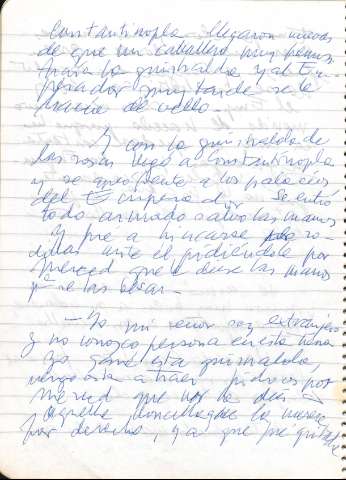 Constantinopla llegaron nuevas
de que un caballero muy famoso
traía la guirnalda y al Em-
perador muy tarde se le
hacía de vello.
Y con la guirnalda de
las rosas llegó a Constantinopla
y se apeó frente a los palacios
del Emperador. Se entró
todo armado salvo las manos
y fué a hincarse de ro-
dillas ante él pidiéndole por
merced que le diese las manos
para se las besar.
— Yo mi señor soy extranjero
y no conozco persona en esta tierra
Yo gané esta guirnalda,
vengo a a traer pidiros por
merced que me la deis a
aquella doncella que la merece
por derecho, y a que fue quitada